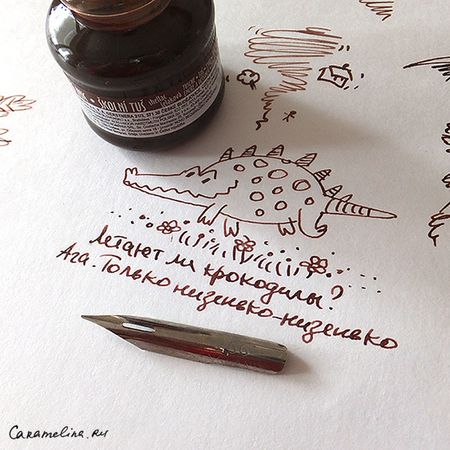 ŠKOLNÍ TUŠ
Летают ли крокодилы?
Ага. Только низенько-низенько
Caramelina.ru